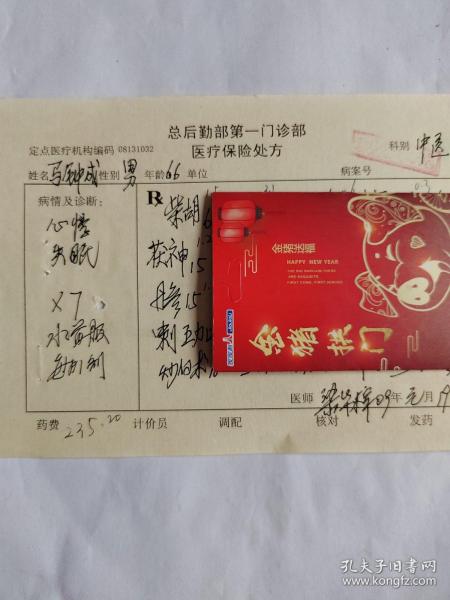 总后勤部第一门诊部
定点医疗机构编码 08131032
医疗保险处方
科别 中医
姓名 性别 男 年龄 66 单位 病案号
病情及诊断:
心悸
失眠
X 7
水煎服
每日1剂
R
柴胡
茯神 15
丹参 15
刺五加
炒白术
金猪送福
HAPPY NEW YEAR
金猪拱门
医师 09年元月19
药费 235.20 计价员 调配 核对 发药
孔夫子旧书网
www.kongfz.com